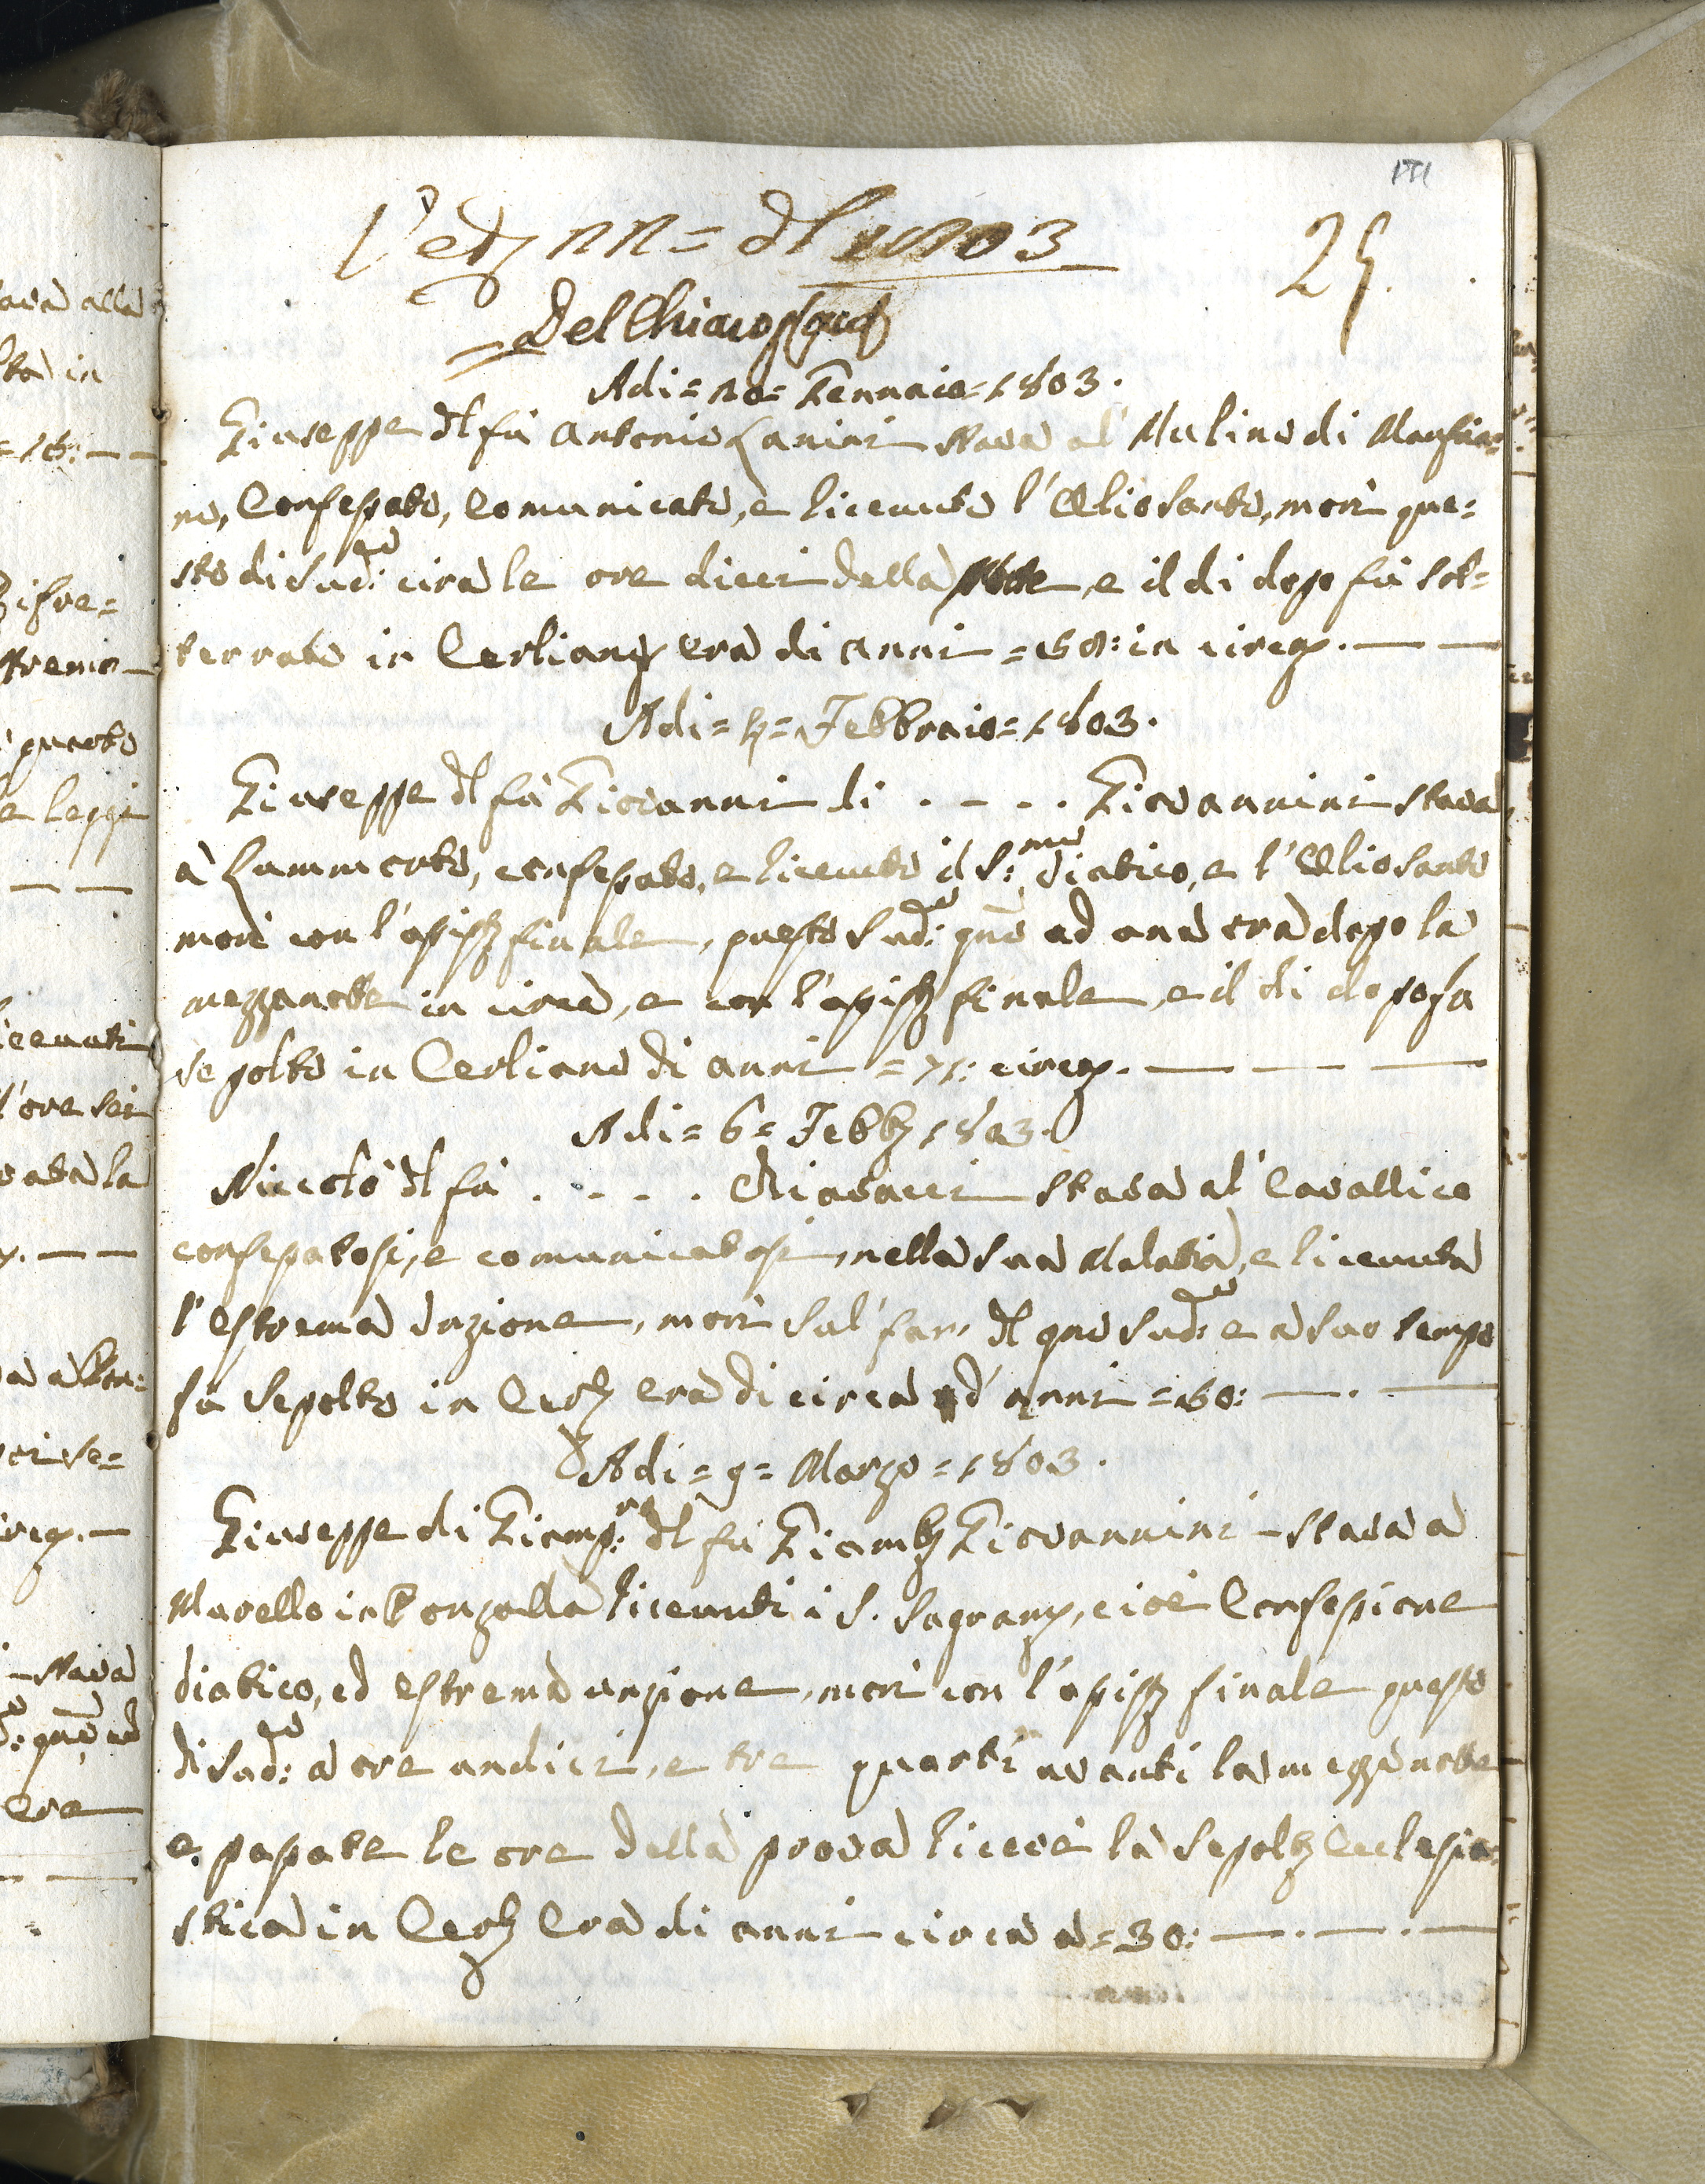 25
Adi = 10 = Gennaio = 1803.
Giuseppe del fù Antonio Zanini stava al Mulino di
no, Confessato, Comunicato, e riceuuto l'Oglio santo, morì que=
sto di Sud:to circa le ore dieci della e il di dopo fù sot=
terrato in Cerliano era di anni = 60: in circa. — —
Adi = 4 = Febbraio = 1803.
Giuseppe del fù Giovanni di . - . . Giovannini stava
à Zummorto, confessato, e riceuuto il S:mo Viatico, e l'Oglio santo
morì con l'assistz finale, questo Sud:to gno ad una ora dopo la
mezzanotte in circa, e con l'assistz finale, e il di dopo fu
sepolto in Cerliano di anni = 71: circa. — — —
Adi = 6 = Febb 1803.
Niccolò del fù . . - . . Chiavacci stava al Cavallico
confessatosi, e comunicatosi, nella sua Malatia, e riceuuta
l'estrema Unzione, morì sul far, del gno sud:to e a suo tempo
fù sepolto in Cerl era di circa d'anni = 60: — . —
Adi = 9 = Marzo = 1803.
Giuseppe di Giamp: del fù Giamb Giovannini - stava a
Marello in riceuuti i S. Sagram, cioè Confessione
Viatico, ed estrema unzione, morì con l'assistz finale questo
di Sud:to a ore undici, e tre quarti avanti la mezzanotte
e. passate le ore della prova riceve la sepolt Ecclesia=
stica in Cerl Era di anni circa a = 30: — . — . —